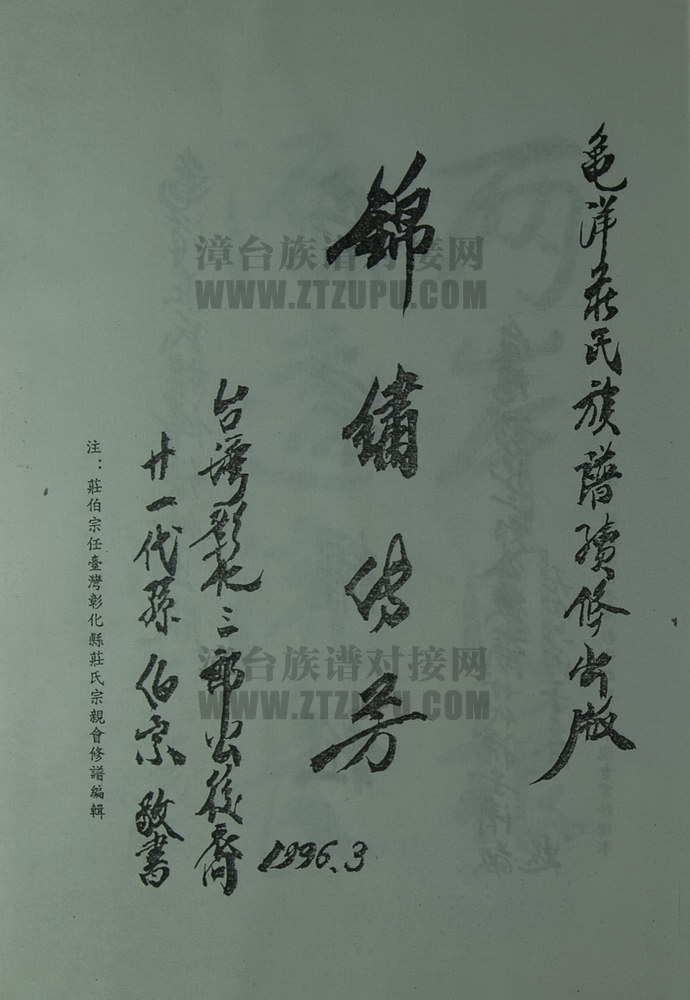 龟洋莊民族譜續修出版
錦繡传芳
1996.3
台灣彰化三郎公後裔
廿一代孫 伯宗 敬書
注：莊伯宗任臺灣彰化縣莊氏宗親會修譜編輯
漳台族谱对接网
WWW.ZTZUPU.COM
漳台族谱对接网
WWW.ZTZUPU.COM